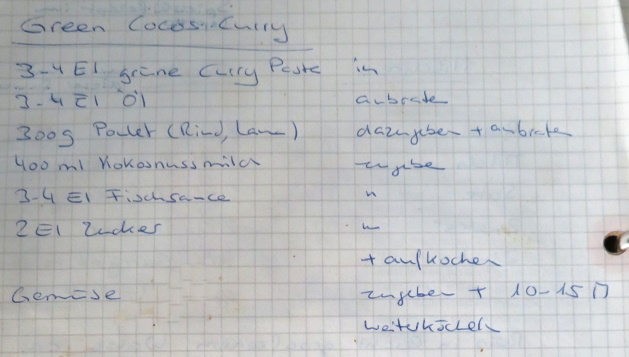 Green Cocos-Curry
3-4 El grüne Curry Paste in
3-4 El Öl anbraten
300g Poulet (Rind, Lamm) dazugeben + anbraten
400 ml Kokosnussmilch zugeben
3-4 El Fischsauce "
2 El Zucker "
+ aufkochen
Gemüse zugeben + 10-15
weiterköcheln